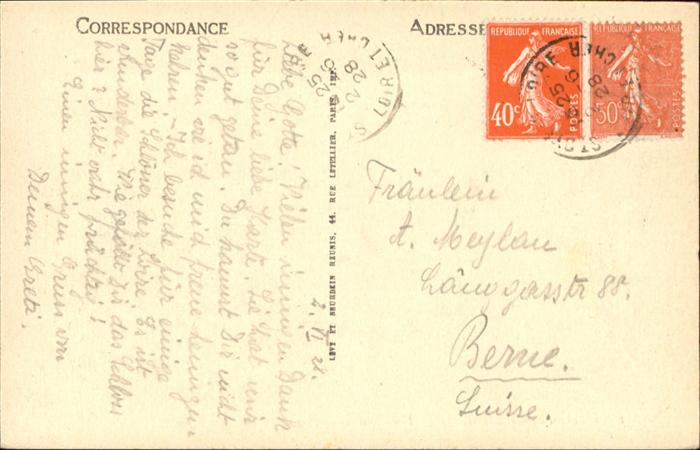 CORRESPONDANCE
ADRESSE
RÉPUBLIQUE FRANÇAISE
40c
POSTES
RÉPUBLIQUE FRANÇAISE
50c
POSTES
LOIR ET CHER
2-6
28
LÉVY ET NEURDEIN RÉUNIS, 44, RUE LETELLIER, PARIS
2. VI 28.
Liebe Gotte! Vielen innigen Dank
für Deine liebe Karte. Sie hat mir
so gut getan. Du kannst Dir nicht
denken wie ich mich freue heimzu-
kehren – Ich besuche für einige
Tage die Schlösser der Loire. Es ist
wunderbar. Wie gefällt Dir das Schloss
hier? Nicht wahr prächtig!
Einen innigen Gruss von
Deinem Greti.
Fräulein
A. Meylan
Länggasstr 88.
Berne.
Suisse.